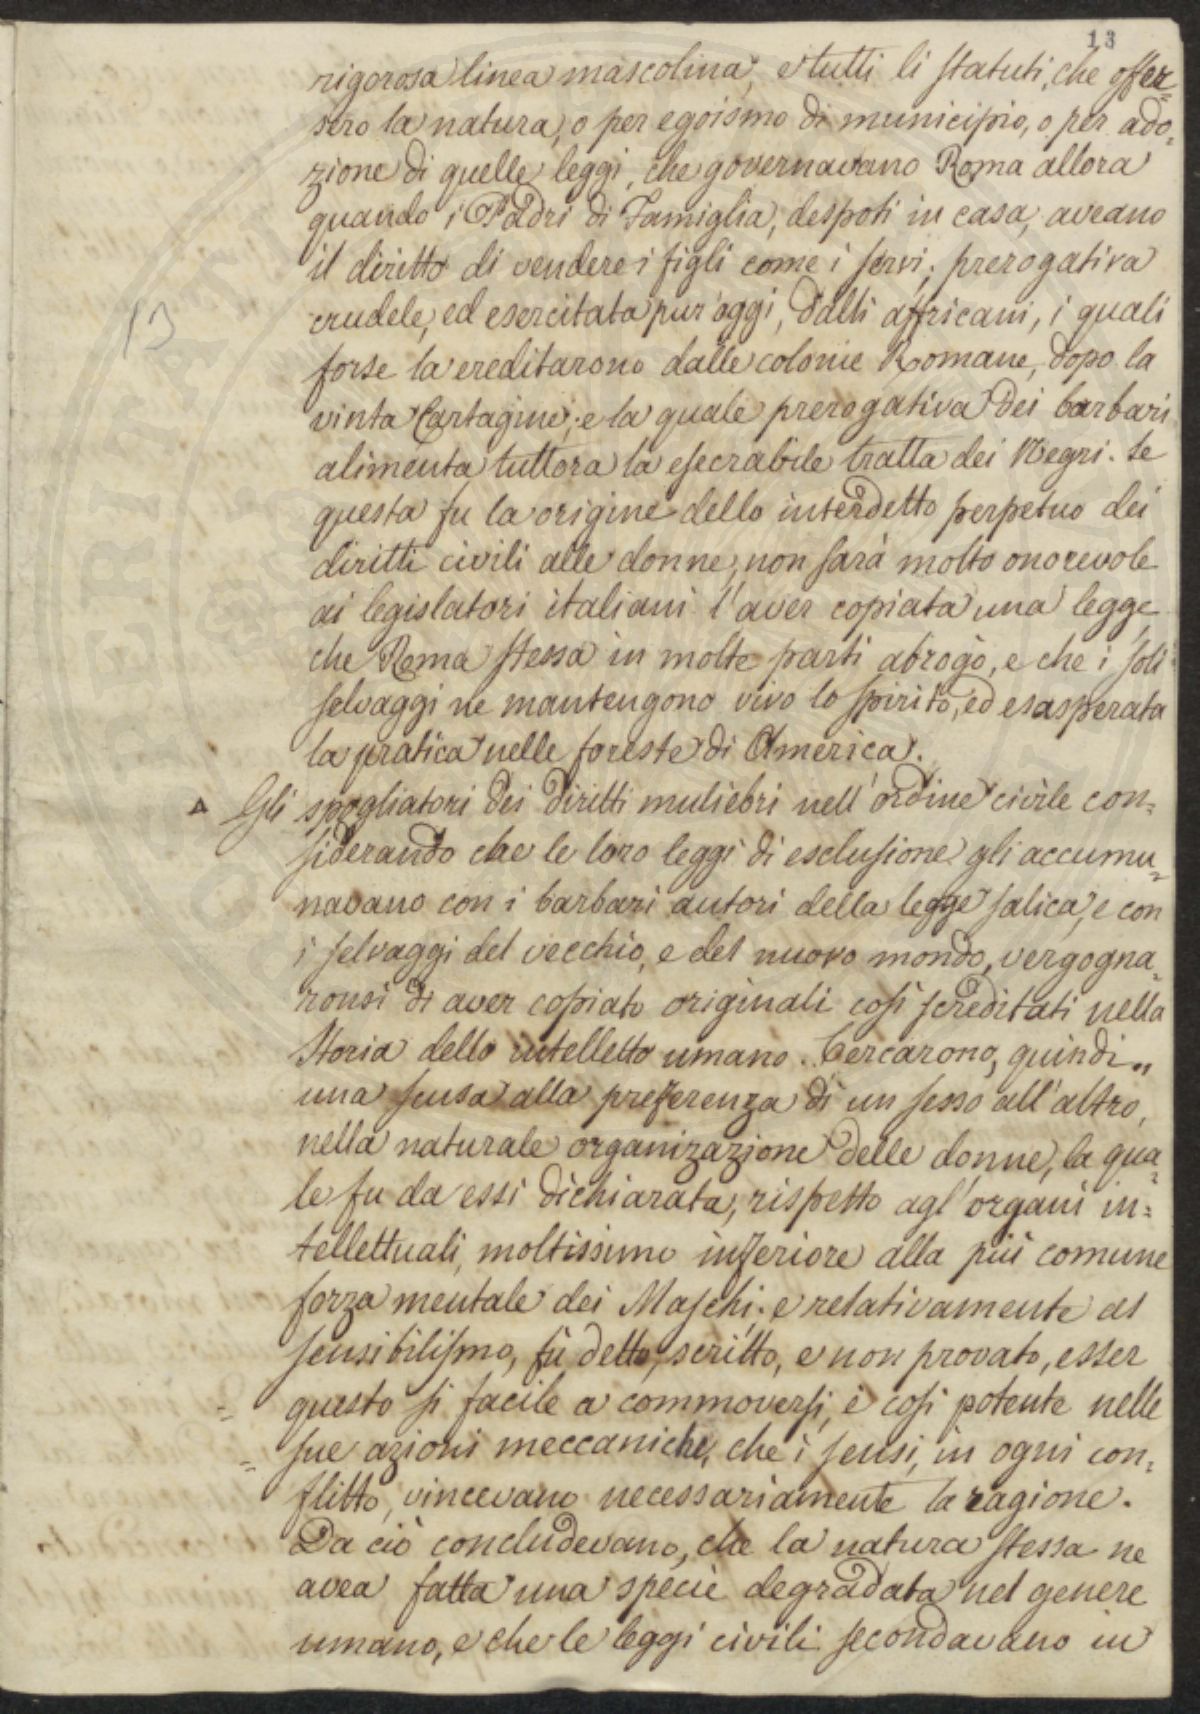 13
rigorosa linea mascolina, e tutti li statuti, che offer=
sero la natura, o per egoismo di municipio, o per ado=
zione di quelle leggi, che governavano Roma allora
quando i Padri di Famiglia, despoti in casa, aveano
il diritto di vendere i figli come i servi; prerogativa
crudele, ed esercitata pur'oggi, dalli affricani, i quali
13
forse la ereditarono dalle colonie Romane, dopo la
vinta Cartagine; e la quale prerogativa dei barbari
alimenta tuttora la esecrabile tratta dei Negri. Se
questa fu la origine dello interdetto perpetuo dei
diritti civili alle donne, non sarà molto onorevole
ai legislatori italiani l'aver copiata una legge
che Roma stessa in molte parti abrogò, e che i soli
selvaggi ne mantengono vivo lo spirito, ed esasperata
la pratica nelle foreste di America.
Gli spogliatori dei diritti muliebri nell'ordine civile con=
siderando che le loro leggi di esclusione gli accumu=
navano con i barbari autori della legge salica, e con
i selvaggi del vecchio, e del nuovo mondo, vergogna=
ronsi di aver copiato originali così screditati nella
Storia dello intelletto umano. Cercarono, quindi„
una scusa alla preferenza di un sesso all'altro,
nella naturale organizazione delle donne, la qua=
le fu da essi dichiarata, rispetto agl'organi in=
tellettuali, moltissimo inferiore alla più comune
forza mentale dei Maschi; e relativamente al
sensibilismo, fù detto, scritto, e non provato, esser
questo sì facile a commoversi, e così potente nelle
sue azioni meccaniche, che i sensi, in ogni con=
flitto, vincevano necessariamente la ragione.
Da ciò concludevano, che la natura stessa ne
avea fatta una specie degradata nel genere
umano, e che le leggi civili secondavano in